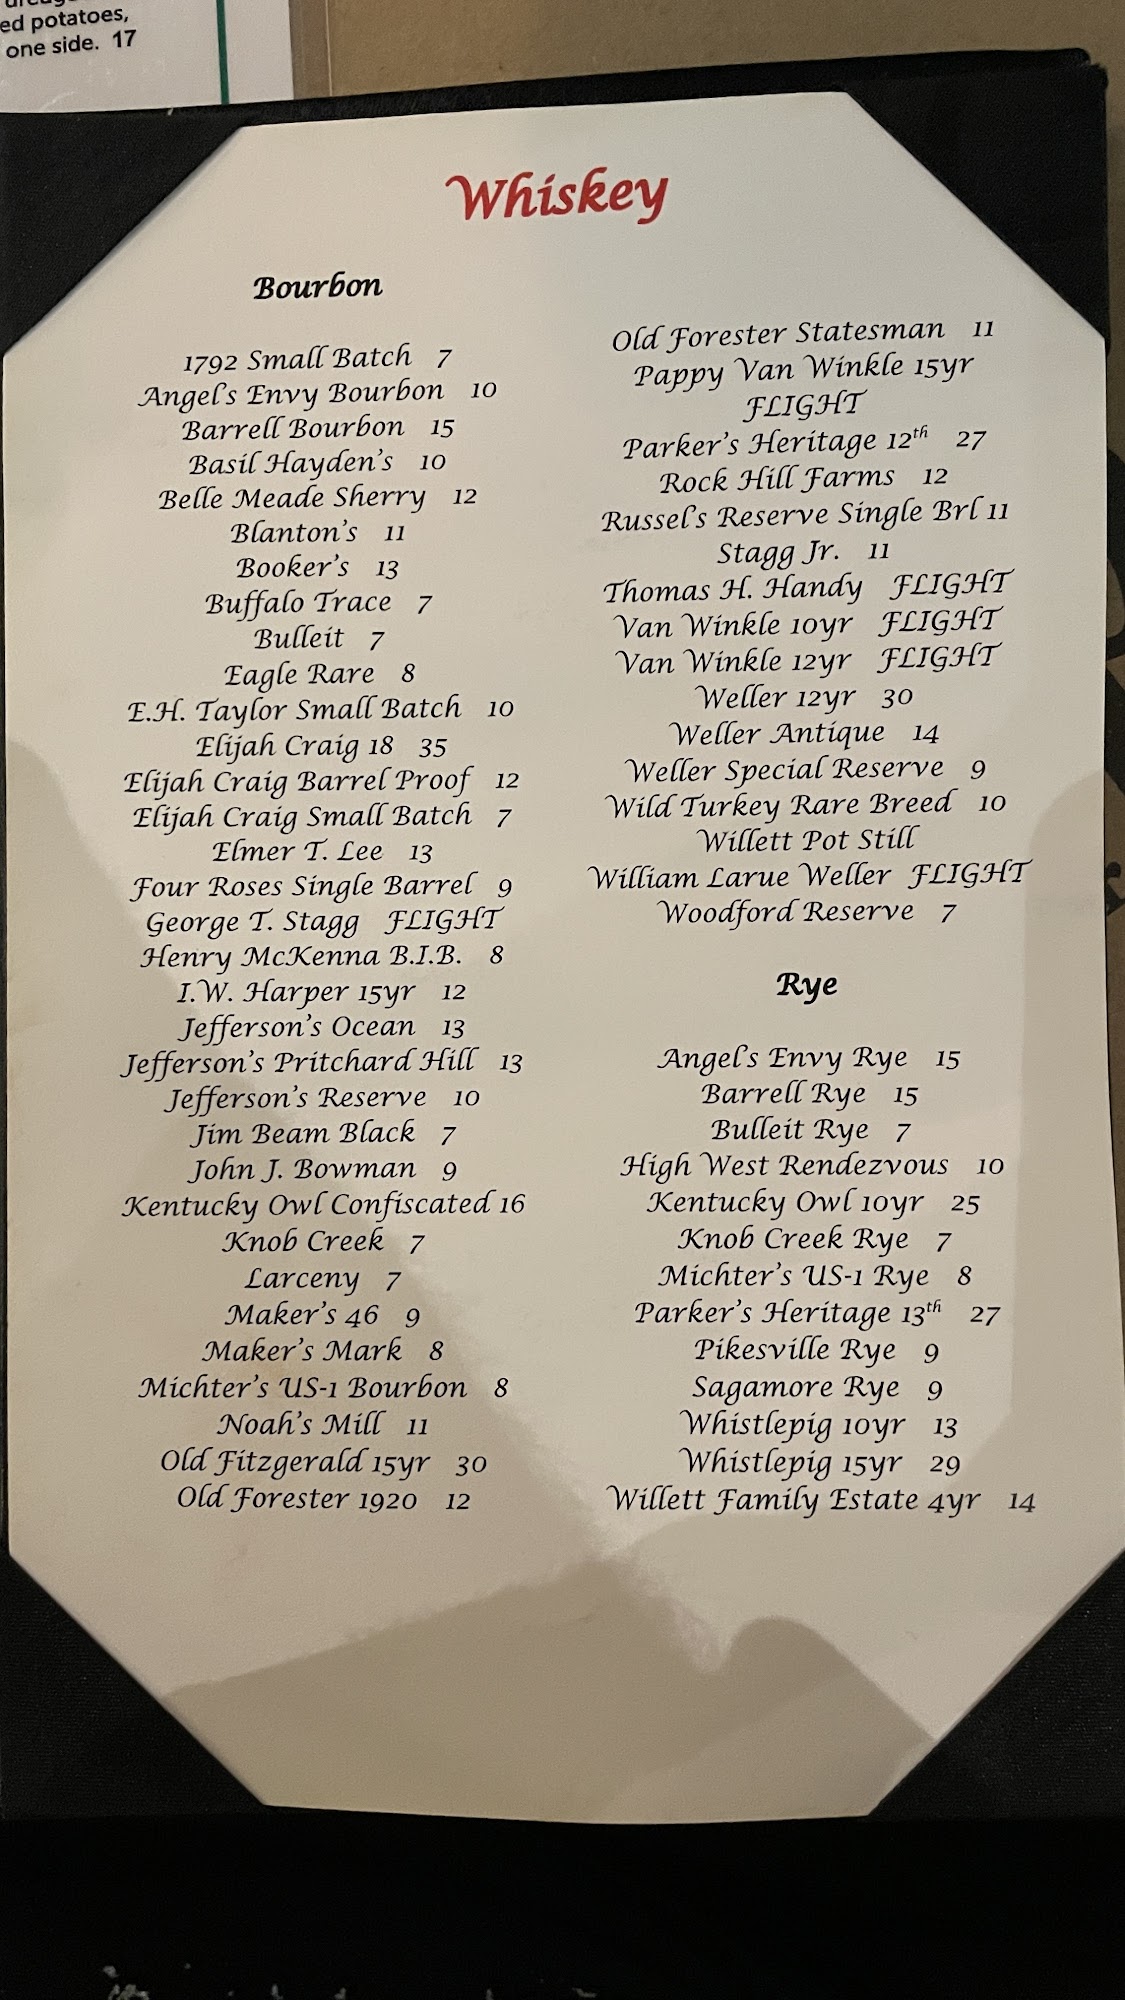 ed potatoes,
one side. 17
Whiskey
Bourbon
1792 Small Batch 7
Angel's Envy Bourbon 10
Barrell Bourbon 15
Basil Hayden's 10
Belle Meade Sherry 12
Blanton's 11
Booker's 13
Buffalo Trace 7
Bulleit 7
Eagle Rare 8
E.H. Taylor Small Batch 10
Elijah Craig 18 35
Elijah Craig Barrel Proof 12
Elijah Craig Small Batch 7
Elmer T. Lee 13
Four Roses Single Barrel 9
George T. Stagg FLIGHT
Henry McKenna B.I.B. 8
I.W. Harper 15yr 12
Jefferson's Ocean 13
Jefferson's Pritchard Hill 13
Jefferson's Reserve 10
Jim Beam Black 7
John J. Bowman 9
Kentucky Owl Confiscated 16
Knob Creek 7
Larceny 7
Maker's 46 9
Maker's Mark 8
Michter's US-1 Bourbon 8
Noah's Mill 11
Old Fitzgerald 15yr 30
Old Forester 1920 12
Old Forester Statesman 11
Pappy Van Winkle 15yr
FLIGHT
Parker's Heritage 12th 27
Rock Hill Farms 12
Russel's Reserve Single Brl 11
Stagg Jr. 11
Thomas H. Handy FLIGHT
Van Winkle 10yr FLIGHT
Van Winkle 12yr FLIGHT
Weller 12yr 30
Weller Antique 14
Weller Special Reserve 9
Wild Turkey Rare Breed 10
Willett Pot Still
William Larue Weller FLIGHT
Woodford Reserve 7
Rye
Angel's Envy Rye 15
Barrell Rye 15
Bulleit Rye 7
High West Rendezvous 10
Kentucky Owl 10yr 25
Knob Creek Rye 7
Michter's US-1 Rye 8
Parker's Heritage 13th 27
Pikesville Rye 9
Sagamore Rye 9
Whistlepig 10yr 13
Whistlepig 15yr 29
Willett Family Estate 4yr 14